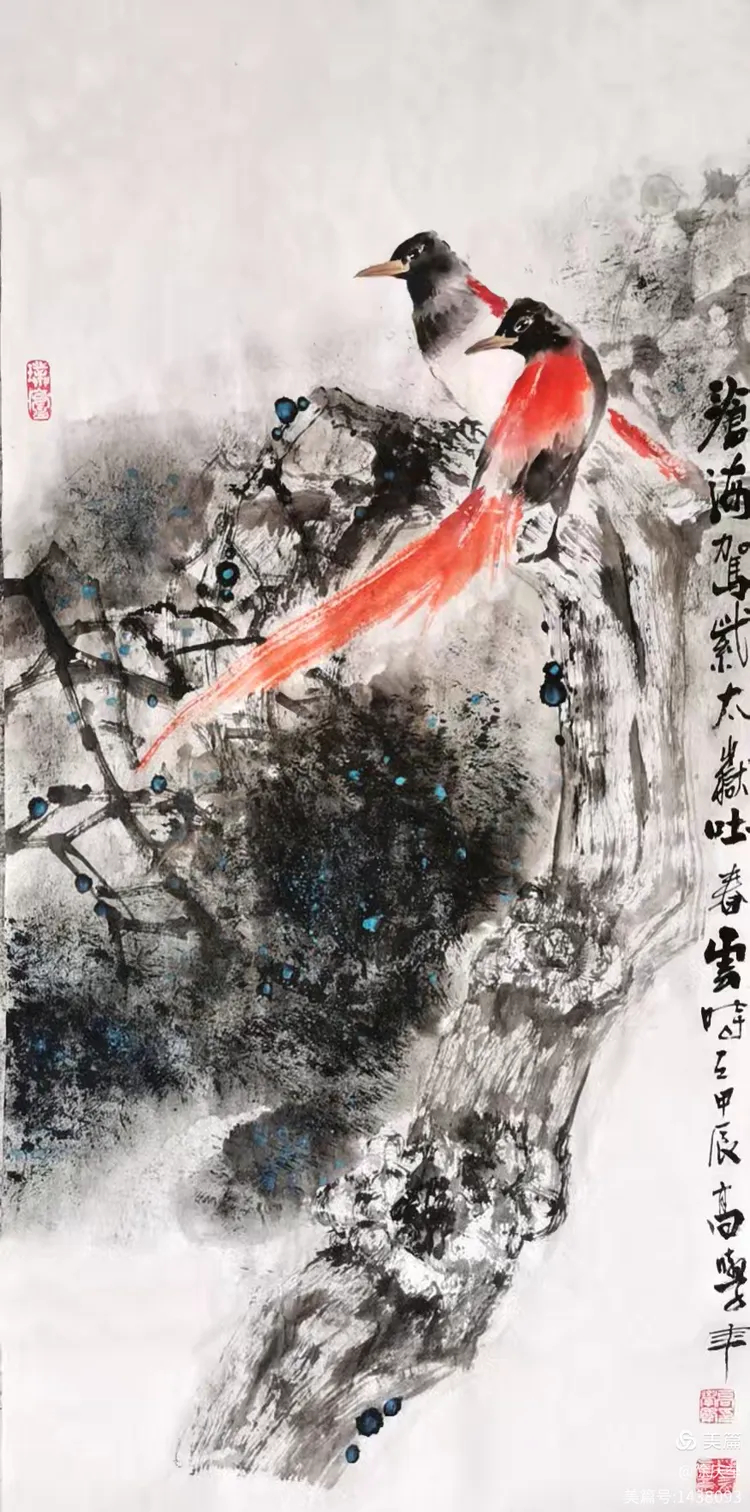 滄海駕紫太嶽吐春雲時在甲辰高學年
美篇
美篇号:1438093